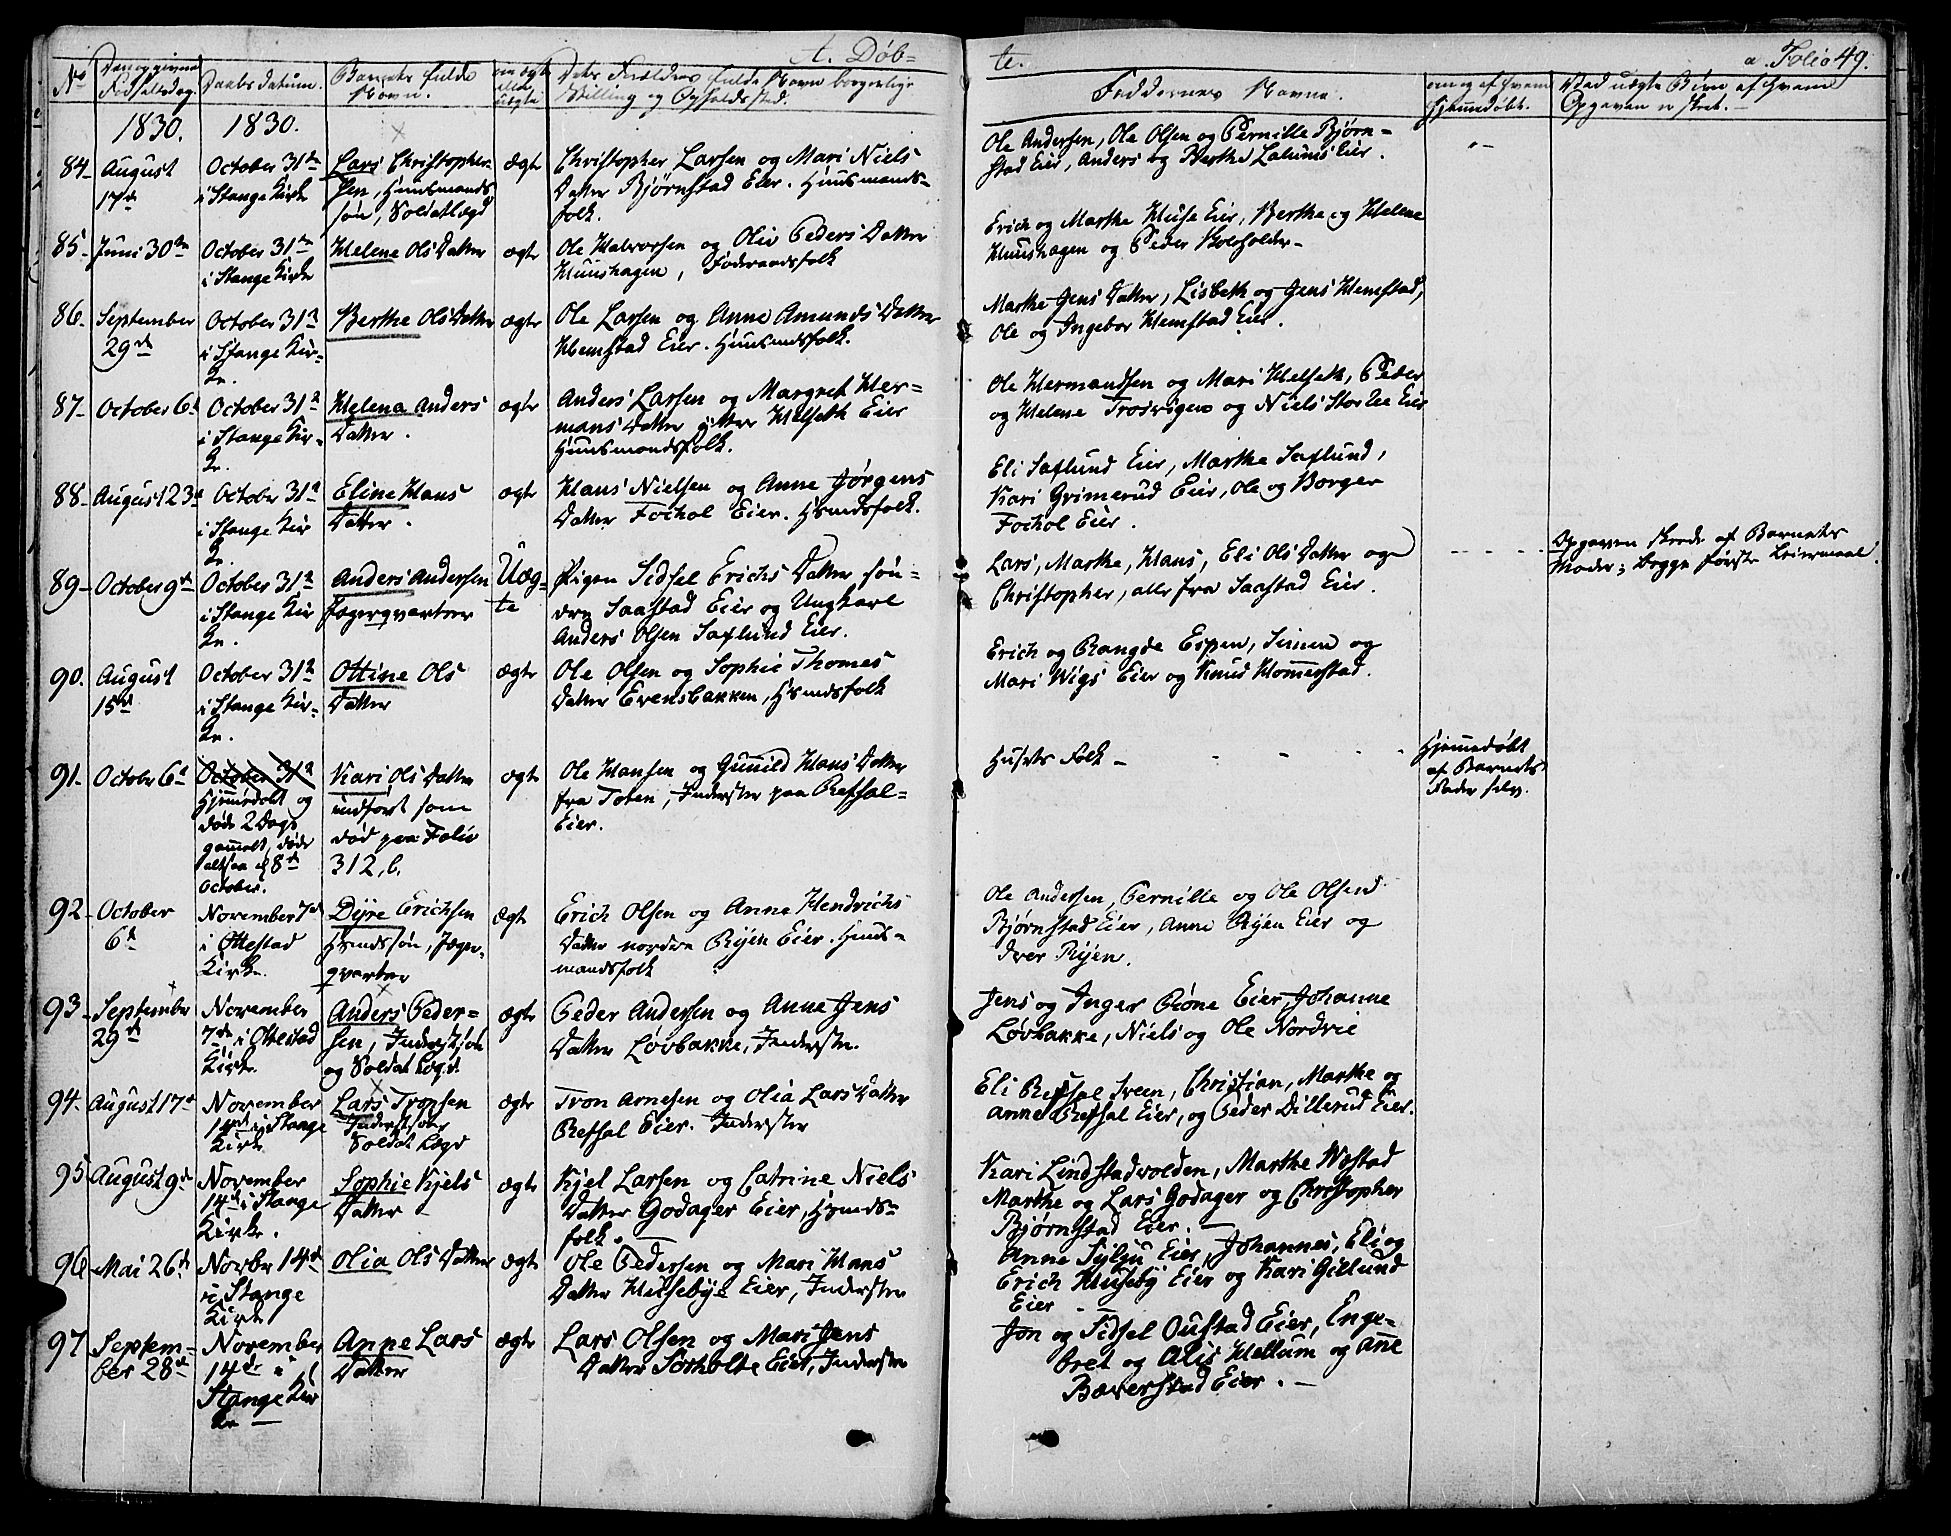 A. Døb-
te.
a. Folio 49.
No
Den opgivne
Fødselsdag.
Daabs Datum.
Barnets fulde
Navn.
om ægte
eller
uægte
Dets Forældres fulde Navne borgerlige
Stilling og Opholdssted.
Faddernes Navne.
om og af hvem
hjemmedøbt.
Ved uægte Børn af hvem
Opgaven er skeet.
1830.
1830.
84 August
17de
October 31te
i Stange Kirke
Lars Christopher-
sen, Huusmands
søn, Soldatlægd
ægte
Christopher Larsen og Mari Niels
Datter Bjørnstad Eier. Huusmands-
folk.
Ole Andersen, Ole Olsen og Pernille Bjørn-
stad Eier, Anders og Berthe Lalums Eier.
85 Juni 30te
October 31te
i Stange Kirke
Helene Ols Datter
ægte
Ole Halvorsen og Oliv Peders Datter
Huushagen, Føderaadsfolk
Erich og Marthe Huse Eier, Berthe og Helene
Huushagen og Peder Kolsholder-
86. September
29de
October 31te
i Stange Kir-
ke.
Berthe Ols Datter
ægte
Ole Larsen og Anne Amunds Datter
Hemstad Eier. Huusmdsfolk.
Marthe Jens Datter, Lisbeth og Jens Hemstad,
Ole og Ingebor Hemstad Eier.
87 October 6te
October 31te
i Stange Kir-
ke.
Helena Anders
Datter.
ægte
Anders Larsen og Margret Her-
mans Datter yttre Helseth Eier
Huusmandsfolk.
Ole Hermandsen og Mari Helseth, Peder
og Helene Frosvigen og Niels Storlee Eier
88 August 23de
October 31te
i Stange Kir
ke.
Eline Hans
Datter.
ægte
Hans Nielsen og Anne Jørgens
Datter Fochol Eier. Hsmdsfolk.
Eli Saxlund Eier, Marthe Saxlund,
Kari Grimerud Eier, Ole og Borger
Fochol Eier.
89 October 9de
October 31te
i Stange Kir
ke.
Anders Andersen
Jægerqvarteer
Uæg-
te
Pigen Sidsel Erichs Datter søn-
dre Saastad Eier og Ungkarl
Anders Olsen Saxlund Eier.
Lars, Marthe, Hans, Eli Ols Datter og
Christopher, alle fra Saastad Eier.
Opgaven skede af Barnets
Moder; begge første Leiermaal.
90. August
15de
October 31te
i Stange Kir-
ke.
Ottine Ols
Datter
ægte
Ole Olsen og Sophie Thomes
Datter Evensbakken, Hsmdsfolk
Erich og Rangde Espen, Simen og
Mari Wigs Eier og Knud Hommerstad.
91. October 6te
October 31te
Hjemmedøbt og
døde 2 Dage
gammelt, døde
altsaa d 8de
October.
Kari Ols Datter
indført som
død paa Folio
312, b.
ægte
Ole Hansen og Gunnild Hans Datter
fra Toten, Inderster paa Refsal-
Eier.
Husets Folk -
Hjemmedøbt
af Barnets
Fader selv.
92. October
6te
November 7de
i Ottestad
Kirke.
Dyre Erichsen
Hsmdssøn, Jæger-
qvarteer
ægte
Erich Olsen og Anne Hendrichs
Datter nordre Ryen Eier. Huus-
mandsfolk
Ole Andersen, Pernille og Ole Olsen
Bjørnstad Eier, Anne Ryen Eier og
Iver Ryen.
93. September
29de
November
7de i Ottestad
Kirke.
Anders Peder-
sen, Inderst søn
og Soldat Lægd.
ægte
Peder Andersen og Anne Jens
Datter Løvbakke, Inderster.
Jens og Inger Røne Eier, Johanne
Løvbakke, Niels og Ole Nordvie
94. August 17de
November
14de i Stange
Kirke
Lars Tronsen
Inderst søn
Soldat Lægd
ægte
Tron Arnesen og Olia Lars Datter
Refsal Eier. Inderster
Eli Refsal Sveen, Christian, Marthe og
Anne Refsal Eier, og Peder Dillerud Eier.
95 August 9de
November
14de i Stange
Kirke.
Sophie Kjels
Datter
ægte
Kjel Larsen og Catrine Niels
Datter Godager Eier, Hsmds-
folk.
Kari Lindstadvolden, Marthe Westad
Marthe og Lars Godager og Christopher
Bjørnstad Eier.
96 Mai 26de
Novbr 14de
i Stange
Kirke
Olia Ols Datter
ægte
Ole Pedersen og Mari Hans
Datter Huseby Eier, Inderster
Anne Sylju Eier, Johannes, Eli og
Erich Huseby Eier og Kari Gillund
Eier
97 Septem-
ber 28de
November
14de i
Stange Kir
ke
Anne Lars
Datter
ægte
Lars Olsen og Mari Jens
Datter Sørholte Eier, Inderster
Jon og Sidsel Oustad Eier, Enge-
bret og Alis Hellum og Anne
Bæverstad Eier.